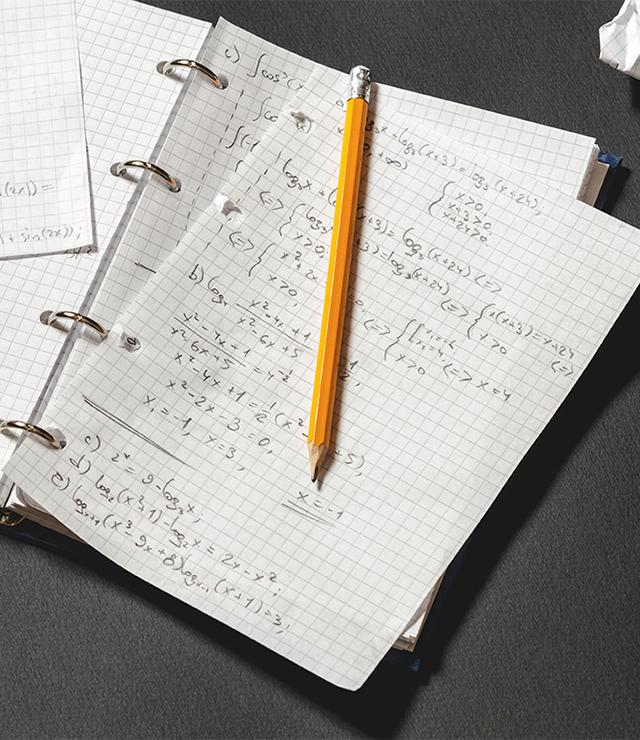 (2x)) =
1 + sin(2x));
c) ∫cos³(x
∫(-1
log₃x + log₃(x+3) = log₃(x+24),
{ x>0, x+3>0, x+24>0,
log₃x + (x+3) = log₃(x+24) <=>
<=> { log₃ +3) = log₃(x+24) x>0, <=> { x(x+3) = x+24 x>0 <=>
<=> { x²+2x = 0, x>0, <=> { x₁=-6, x₂=4, x>0 <=> x=4
b) log₄ (x²-4x+1)/(x²-6x+5) 1/2,
(x²-4x+1)/(x²-6x+5) = 4^-1/2
x²-4x+1 = 1/2 (x² +5),
x²-2x-3=0,
x₁=-1, x=3,
x=-1
c) 2ˣ = 9 - log₃x,
d) log₂(x²+1) - log₂x = 2x - x²;
logₓ₊₁(x³-9x+8) logₓ₋₁(x+1) = 3;